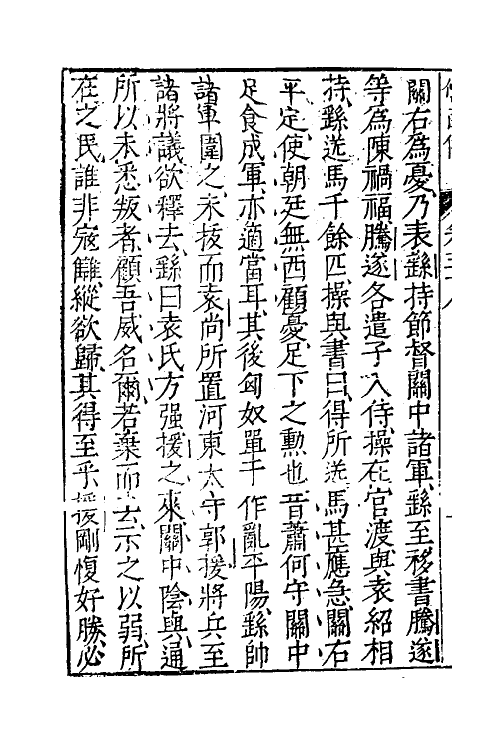 關右爲憂乃表繇持節督關中諸軍繇至移書騰遂
等爲陳禍福騰遂各遣子入侍操在官渡與袁紹相
持繇送馬千餘匹操與書曰得所送馬甚應急關右
平定使朝廷無西顧憂足下之勲也昔蕭何守關中
足食成軍亦適當耳其後匈奴單于作亂平陽繇帥
諸軍圍之未拔而袁尚所置河東太守郭援將兵至
諸將議欲釋去繇曰袁氏方强援之來關中陰與通
所以未悉叛者顧吾威名爾若棄而去示之以弱所
在之民誰非寇讎縱欲歸其得至乎援剛愎好勝必